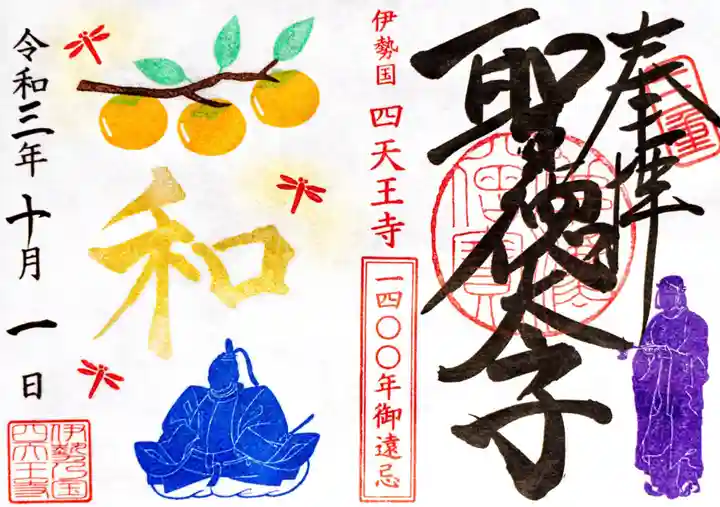 奉拝
三重
聖徳太子
伊勢国 四天王寺
一四〇〇年御遠忌
和
令和三年十月一日
伊勢乃国
四天王寺